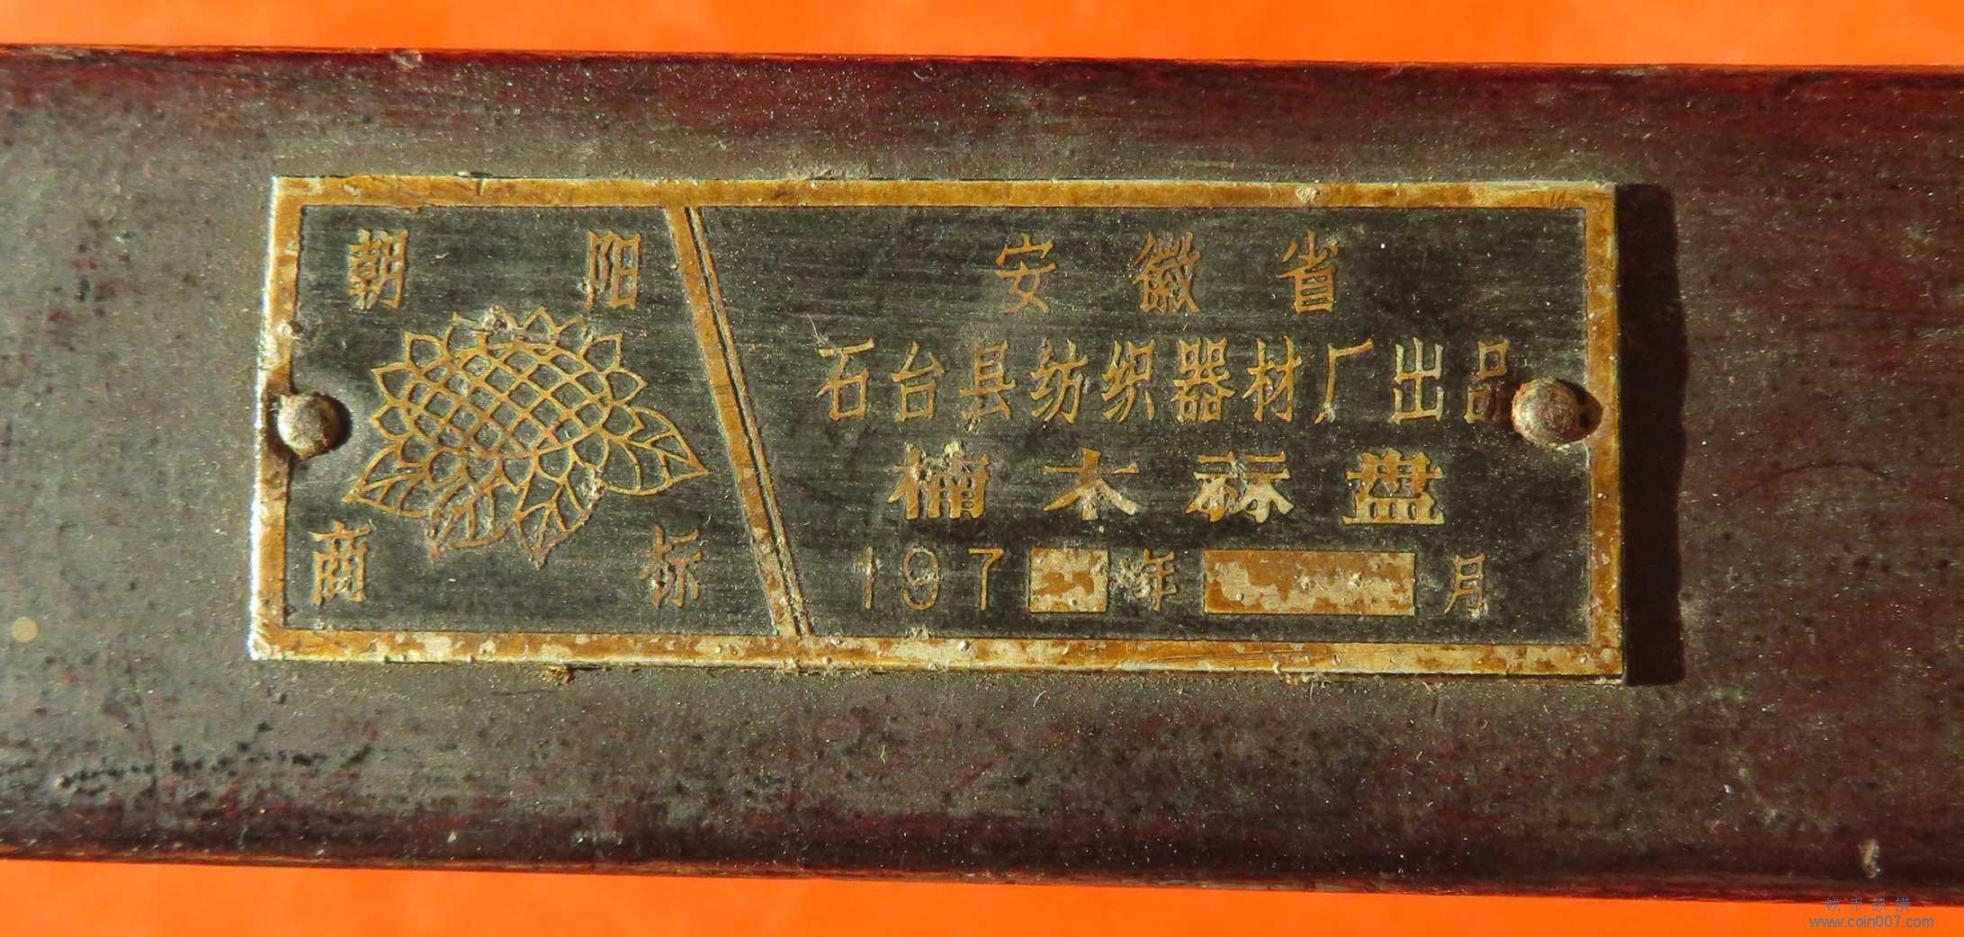 朝阳
商标
安徽省
石台县纺织器材厂出品
楠木标盘
197 年 月
www.coin007.com